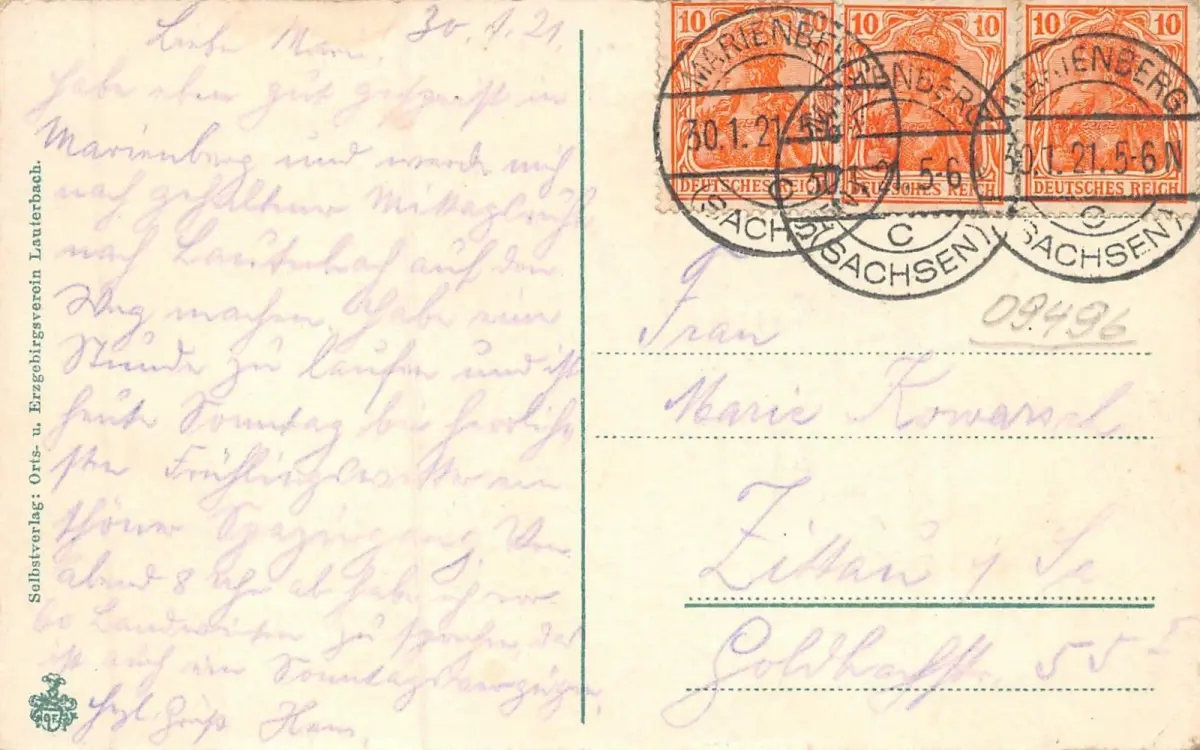 30.1.21.
Liebe Marie
habe eben gut gespeist in
Marienberg und werde mich
nach gehaltener Mittagsruhe
nach Lauterbach auf den
Weg machen. Habe eine
Stunde zu laufen und ist
heute Sonntag bei herrlich-
sten Frühlingswetter ein
schöner Spaziergang. Von
abend 8 Uhr ab habe ich vor
60 Landwirten zu sprechen, das
ist auch ein Sonntagsvergnügen.
Hzl. Gruß Hans.
Selbstverlag: Orts- u. Erzgebirgsverein Lauterbach.
10 10 10 10 10 10
DEUTSCHES REICH DEUTSCHES REICH DEUTSCHES REICH
MARIENBERG
30.1.21. 5-6 N
C
(SACHSEN)
MARIENBERG
30.1.21. 5-6 N
C
(SACHSEN)
MARIENBERG
30.1.21. 5-6 N
C
(SACHSEN)
09496
Frau
Marie Kowarsch
Zittau i/Sa
Goldbachstr. 55 I